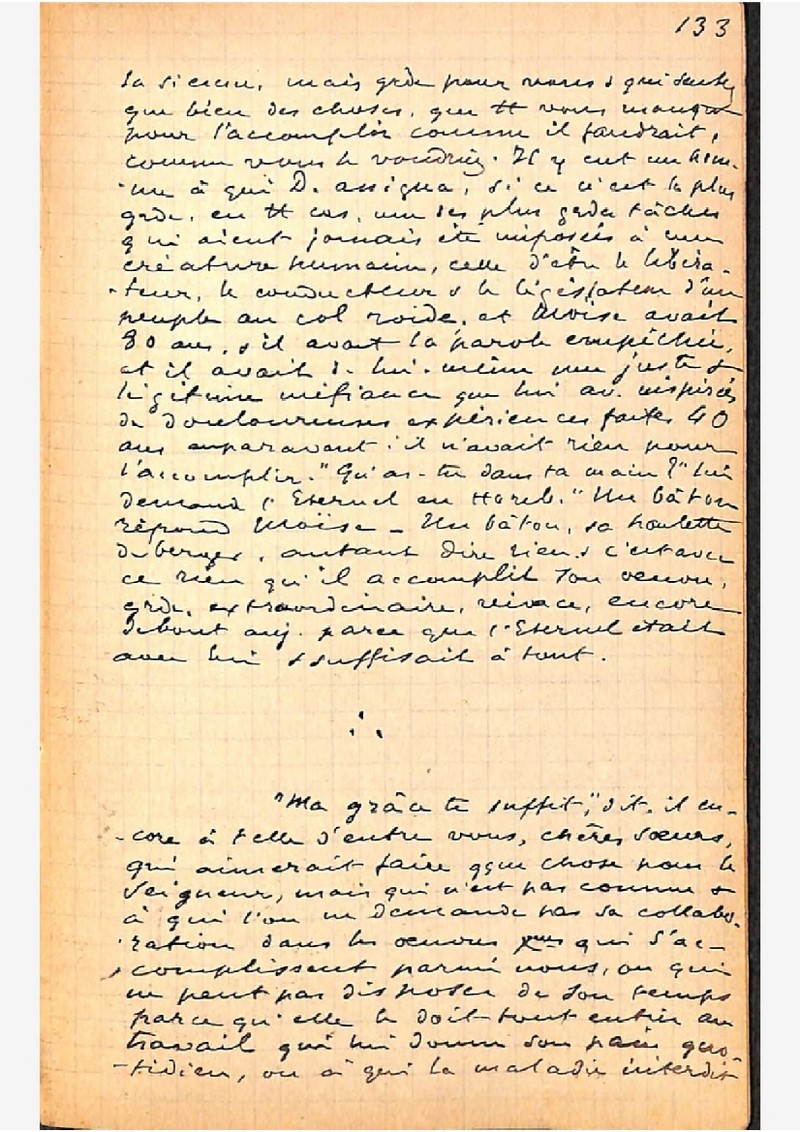 133
la sienne, mais gde pour vous & qui sentez
que bien des choses, que tt vous manque
pour l'accomplir comme il faudrait,
comme vous le voudriez. Il y eut un hom-
-me à qui D. assigna, si ce n'est la plus
gde, en tt cas, une des plus gdes tâches
qui aient jamais été imposées à une
créature humaine, celle d'être le libéra-
-teur, le conducteur & le législateur d'un
peuple au col roide, et Moïse avait
80 ans, & il avait la parole empêchée,
et il avait de lui-même une juste &
légitime méfiance que lui av. inspirée
de douloureuses expériences faites 40
ans auparavant : il n'avait rien pour
l'accomplir. "Qu'as-tu dans ta main ?" lui
demand l'Eternel en Horeb. "Un bâton
répond Moïse – Un bâton, sa houlette
de berger, autant dire rien & c'est avec
ce rien qu'il accomplit son oeuvre,
gde, extraordinaire, vivace, encore
debout auj. parce que l'Eternel était
avec lui & suffisait à tout.
"Ma grâce te suffit", dit-il en-
-core à telle d'entre vous, chères soeurs,
qui aimerait faire qque chose pour le
Seigneur, mais qui n'est pas connue &
à qui l'on ne demande pas sa collabo-
-ration dans les oeuvres qui s'ac-
-complissent parmi nous, ou qui
ne peut pas disposer de son temps
parce qu'elle le doit tout entier au
travail qui lui donne son pain quo-
-tidien, ou à qui la maladie interdit